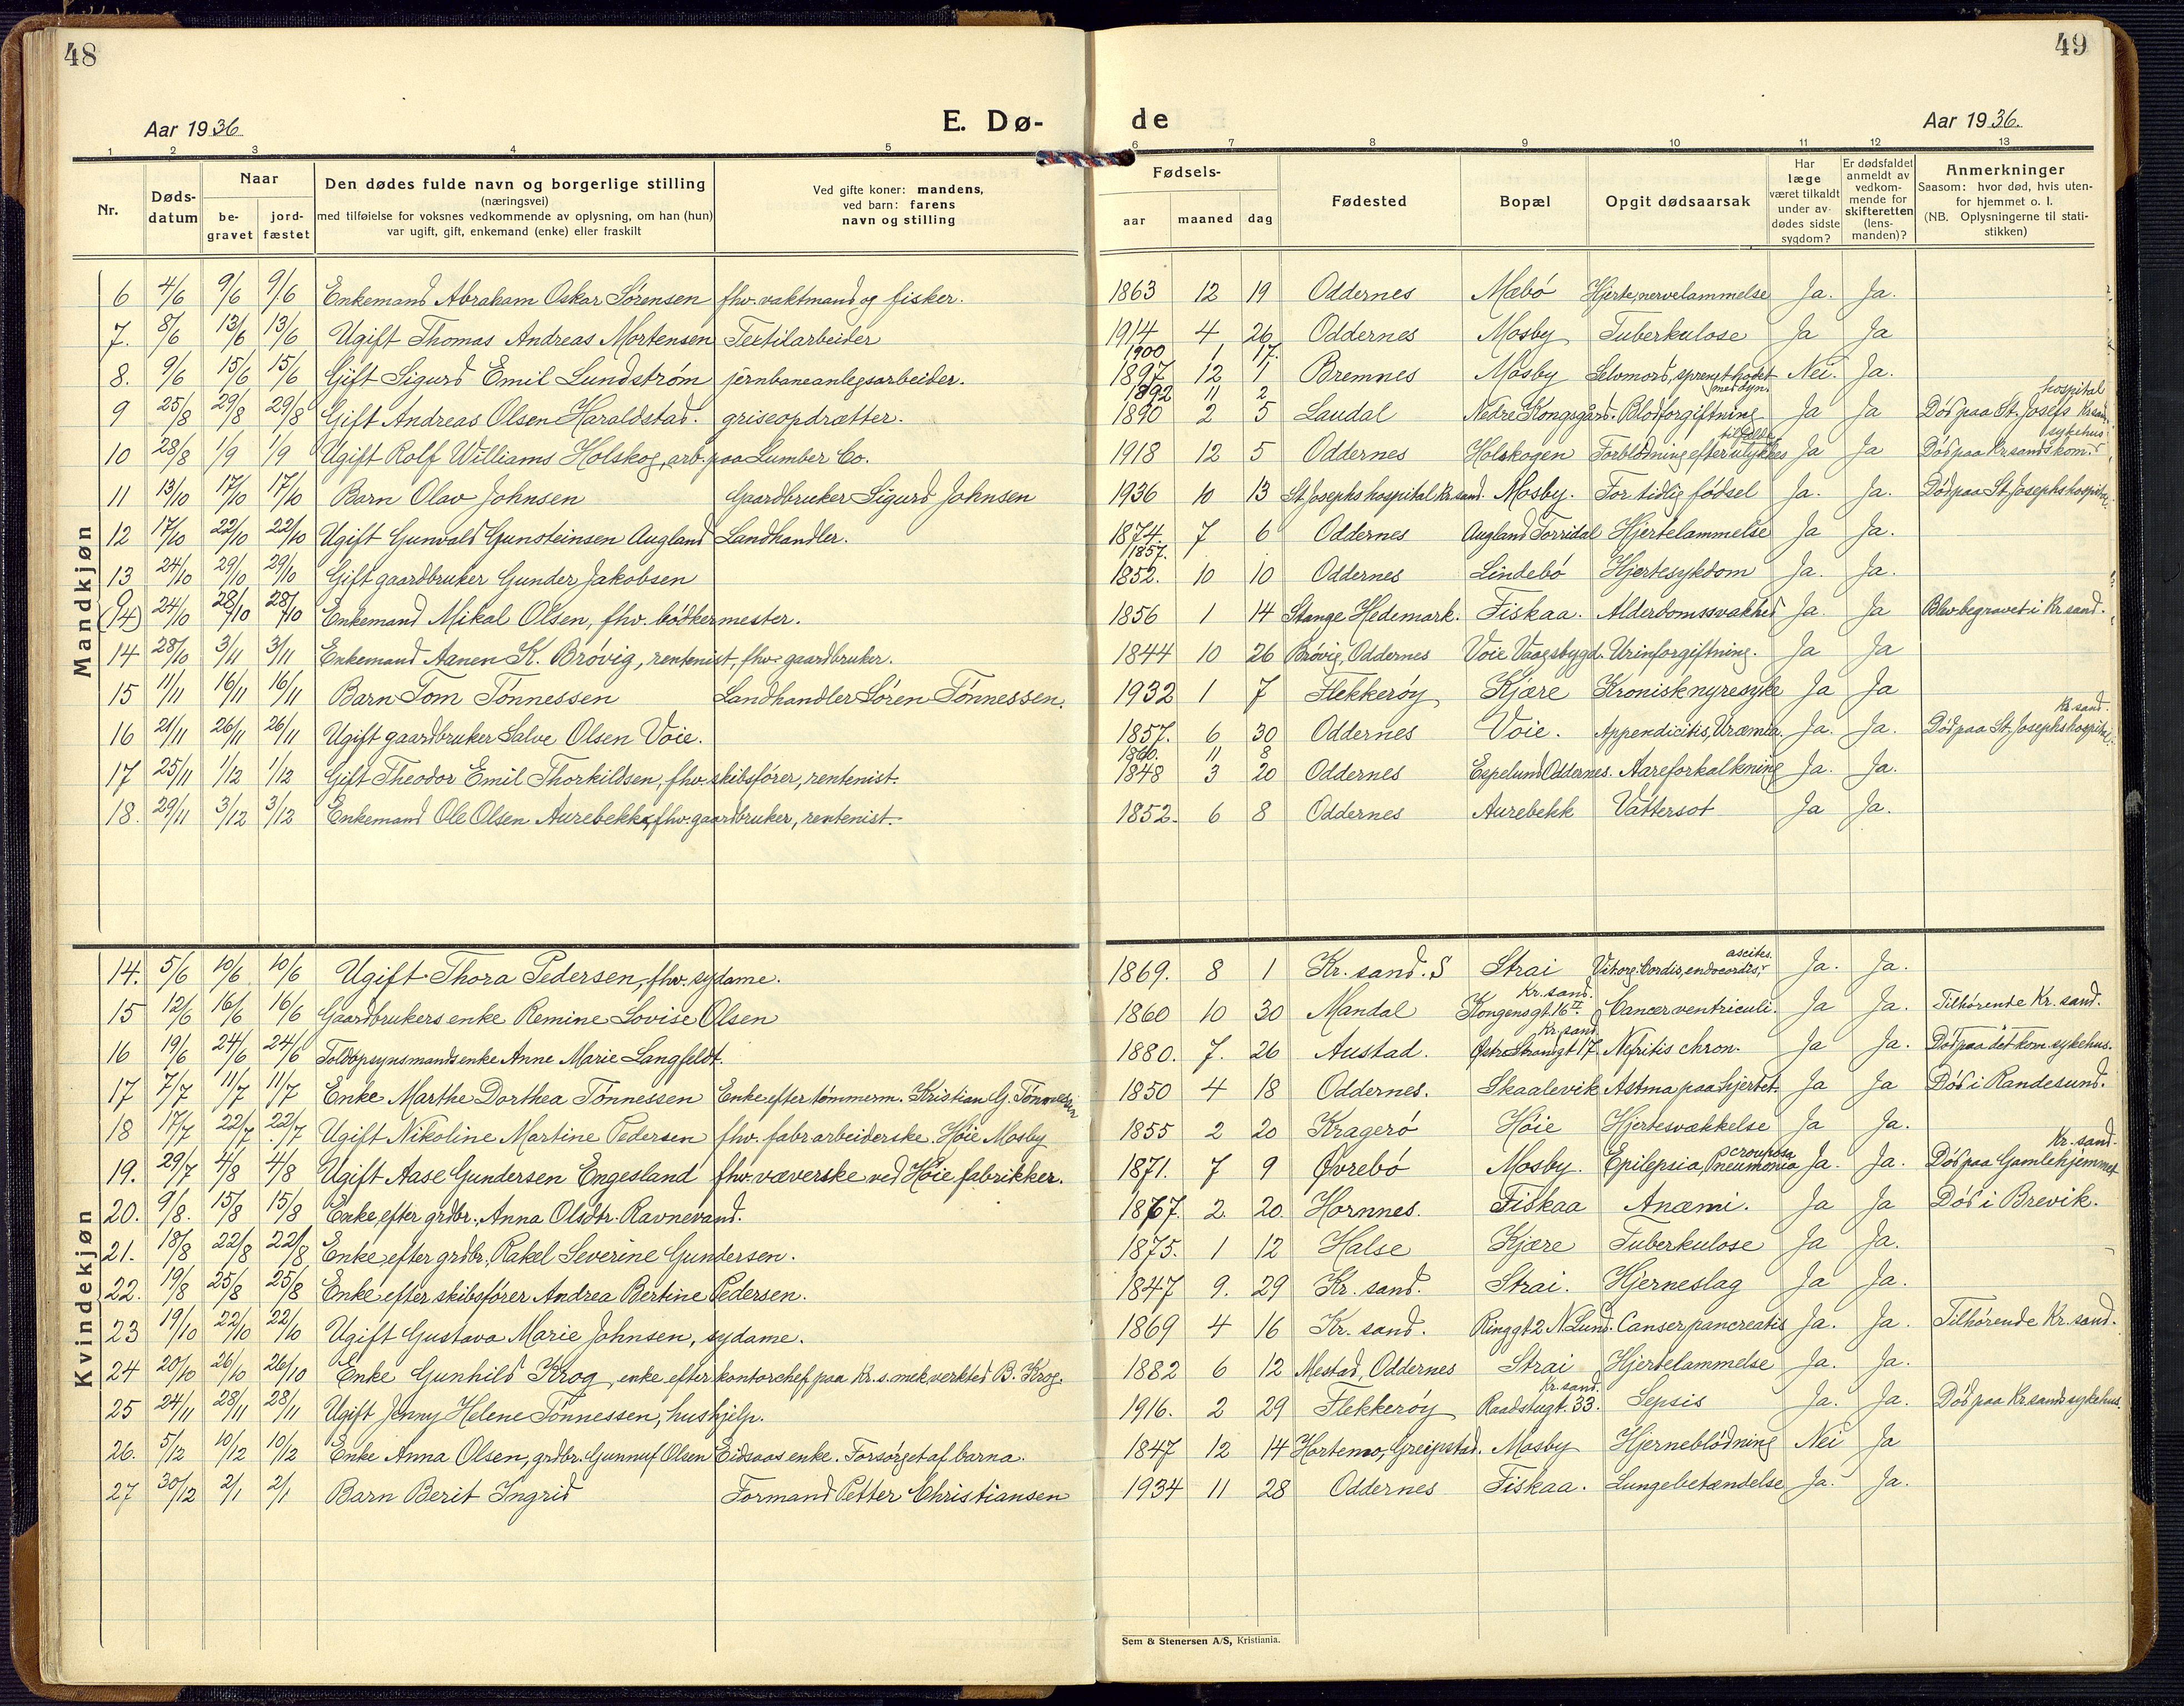 48
49
Aar 1936
E. Dø-
de
Aar 1936.
1 2 3 4 5 6 7 8 9 10 11 12 13
Nr.
Døds-
datum
Naar
be-
gravet
jord-
fæstet
Den dødes fulde navn og borgerlige stilling
(næringsvei)
med tilføielse for voksnes vedkommende av oplysning, om han (hun)
var ugift, gift, enkemand (enke) eller fraskilt
Ved gifte koner: mandens,
ved barn: farens
navn og stilling
Fødsels-
aar
maaned
dag
Fødested
Bopæl
Opgit dødsaarsak
Har
læge
været tilkaldt
under av-
dødes sidste
sygdom?
Er dødsfaldet
anmeldt av
vedkom-
mende for
skifteretten
(lens-
manden)?
Anmerkninger
Saasom: hvor død, hvis uten-
for hjemmet o. l.
(NB. Oplysningerne til stati-
stikken)
Mandkjøn
6 4/6 9/6 9/6 Enkemand Abraham Oskar Sørensen fhv. vaktmand og fisker. 1863 12 19 Oddernes Mæbø Hjerte, nervelammelse Ja. Ja.
7. 8/6 13/6 13/6 Ugift Thomas Andreas Mortensen Textilarbeider 1914 4 26 Oddernes Mosby Tuberkulose Ja Ja
1900 1 17.
8. 9/6 15/6 15/6 Gift Sigurd Emil Lundstrøm jernbaneanlegsarbeider. 1897 12 1 Bremnes Mosby Selvmord, sprengt hodet med dyn. Nei. Ja.
1892 11 2
9 25/8 29/8 29/8 Gift Andreas Olsen Haraldstad. griseopdrætter. 1890 2 5 Laudal Nedre Kongsgård. Blodforgiftning Ja Ja Død paa St. Josefs hospital Kr.sand.
10 28/8 1/9 1/9 Ugift Rolf Williams Holskog, arb. paa Lumber Co. 1918 12 5 Oddernes Holskogen Forblødning efter ulykkestilfælde Ja Ja Død paa Kr.sands kom. sykehus
11 13/10 17/10 17/10 Barn Olav Johnsen Gaardbruker Sigurd Johnsen 1936 10 13 St. Josephs hospital Kr.sand. Mosby. For tidlig fødsel Ja. Ja. Død paa St. Josephs hospital
12 17/10 22/10 22/10 Ugift Gunvald Gunsteinsen Augland Landhandler. 1874. 7 6 Oddernes Augland Torridal Hjertelammelse Ja Ja.
1857.
13 24/10 29/10 29/10 Gift gaardbruker Gunder Jakobsen 1852. 10 10 Oddernes Lindebø Hjertesykdom Ja. Ja.
(14) 24/10 28/10 28/10 Enkemand Mikal Olsen, fhv. bødkermester. 1856 1 14 Stange Hedemark. Fiskaa. Alderdomssvakhed Ja. Ja Blev begravet i Kr.sand.
14 28/10 3/11 3/11 Enkemand Aanen K. Brøvig, rentenist, fhv. gaardbruker. 1844 10 26 Brøvig, Oddernes Voie Vaagsbygd. Urinforgiftning. Ja Ja
15 11/11 16/11 16/11 Barn Tom Tønnessen Landhandler Søren Tønnessen. 1932 1 7 Flekkerøy Kjære Kronisk nyresyke Ja Ja
16 21/11 26/11 26/11 Ugift gaardbruker Salve Olsen Voie. 1857. 6 30 Oddernes Voie. Appendicitis, Uræmia. Ja. Ja. Død paa St. Josephs hospital Kr.sand.
1860. 11 8
17 25/11 1/12 1/12 Gift Theodor Emil Thorkildsen, fhv. skibsfører, rentenist. 1848 3 20 Oddernes Espelund Oddernes. Aareforkalkning Ja. Ja.
18. 29/11 3/12 3/12 Enkemand Ole Olsen Aurebekk, fhv. gaardbruker, rentenist. 1852. 6 8 Oddernes Aurebekk Vattersot Ja Ja.
Kvindekjøn
14. 5/6 10/6 10/6 Ugift Thora Pedersen, fhv. sydame. 1869. 8 1 Kr.sand. S Strai cordis, ascites. Ja. Ja.
15 12/6 16/6 16/6 Gaardbrukers enke Remine Lovise Olsen 1860 10 30 Mandal Kongensgt. 16 II Kr.sand. Cancer ventriculi. Ja Ja. Tilhørende Kr.sand.
16 19/6 24/6 24/6 Toldopsynsmands enke Anne Marie Langfeldt. 1880. 7. 26 Austad. Østre Strandgt 17 Kr.sand. Nefritis chron. Ja Ja. Død paa det kom. sykehus.
17 7/7 11/7 11/7 Enke Marthe Dorthea Tønnessen Enke efter tømmerm. Kristian G. Tønnessen 1850 4 18 Oddernes. Skaalevik Astma paa hjertet. Ja Ja Død i Randesund.
18 17/7 22/7 22/7 Ugift Nikoline Martine Pedersen fhv. fabr.arbeiderske. Høie Mosby 1855 2 20 Kragerø Høie Hjertesvækkelse Ja Ja.
19. 29/7 4/8 4/8 Ugift Aase Gundersen Engesland fhv. væverske ved Høie fabrikker. 1871. 7 9 Øvrebø Mosby. Epilepsia, Pneumonia crouposa Ja. Ja. Død paa Gamlehjemmet Kr.sand.
20. 9/8. 15/8 15/8 Enke efter grdbr. Anna Olsdtr. Ravnevand. 1867. 2. 20. Hornnes. Fiskaa Anæmi. Ja Ja Død i Brevik.
21. 18/8 22/8 22/8 Enke efter grdbr. Rakel Severine Gundersen. 1875. 1 12 Halse Kjære Tuberkulose Ja Ja.
22. 19/8 25/8 25/8 Enke efter skibsfører Andrea Bertine Pedersen. 1847 9. 29 Kr.sand. Strai. Hjerneslag Ja Ja.
23 19/10 22/10 22/10 Ugift Gustava Marie Johnsen, sydame. 1869 4 16 Kr.sand. Ringgt 2 N. Lund. Canser pancreatis Ja. Ja. Tilhørende Kr.sand.
24 20/10 26/10 26/10 Enke Gunhild Krog, enke efter kontorchef paa Kr.s. mek. verksted B. Krog. 1882 6 12 Mestad, Oddernes Strai Hjertelammelse Ja. Ja.
25 24/11 28/11 28/11 Ugift Jenny Helene Tønnessen, hushjelp. 1916. 2 29 Flekkerøy Raadstugt. 33. Kr.sand. Sepsis Ja. Ja. Død paa Kr.sands sykehus.
26. 5/12 10/12 10/12 Enke Anna Olsen, grdbr. Gunnuf Olsen Eidsaas enke. Forsørget af barna. 1847 12 14 Hortemo, Greipstad. Mosby Hjerneblødning Nei Ja
27 30/12 2/1 2/1 Barn Berit Ingrid Formand Petter Christiansen 1934 11 28 Oddernes Fiskaa. Lungebetændelse Ja. Ja.
Sem & Stenersen A/S, Kristiania.